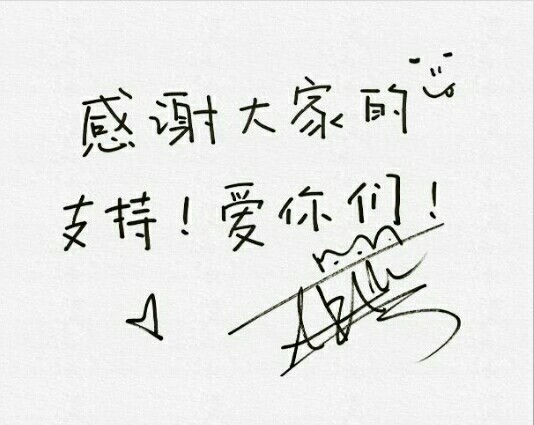 感谢大家的
支持！爱你们！